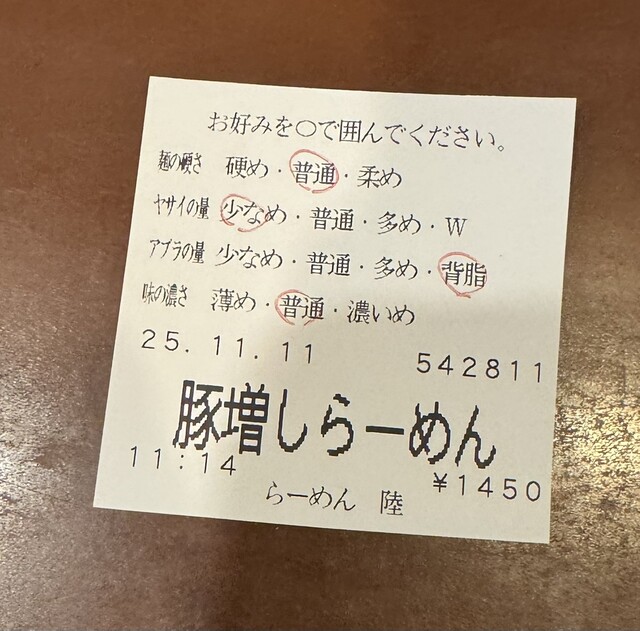 お好みを○で囲んでください。
麺の硬さ 硬め・普通・柔め
ヤサイの量 少なめ・普通・多め・W
アブラの量 少なめ・普通・多め・背脂
味の濃さ 薄め・普通・濃いめ
25.11.11 542811
豚増しらーめん
11:14 ¥1450
らーめん 陸